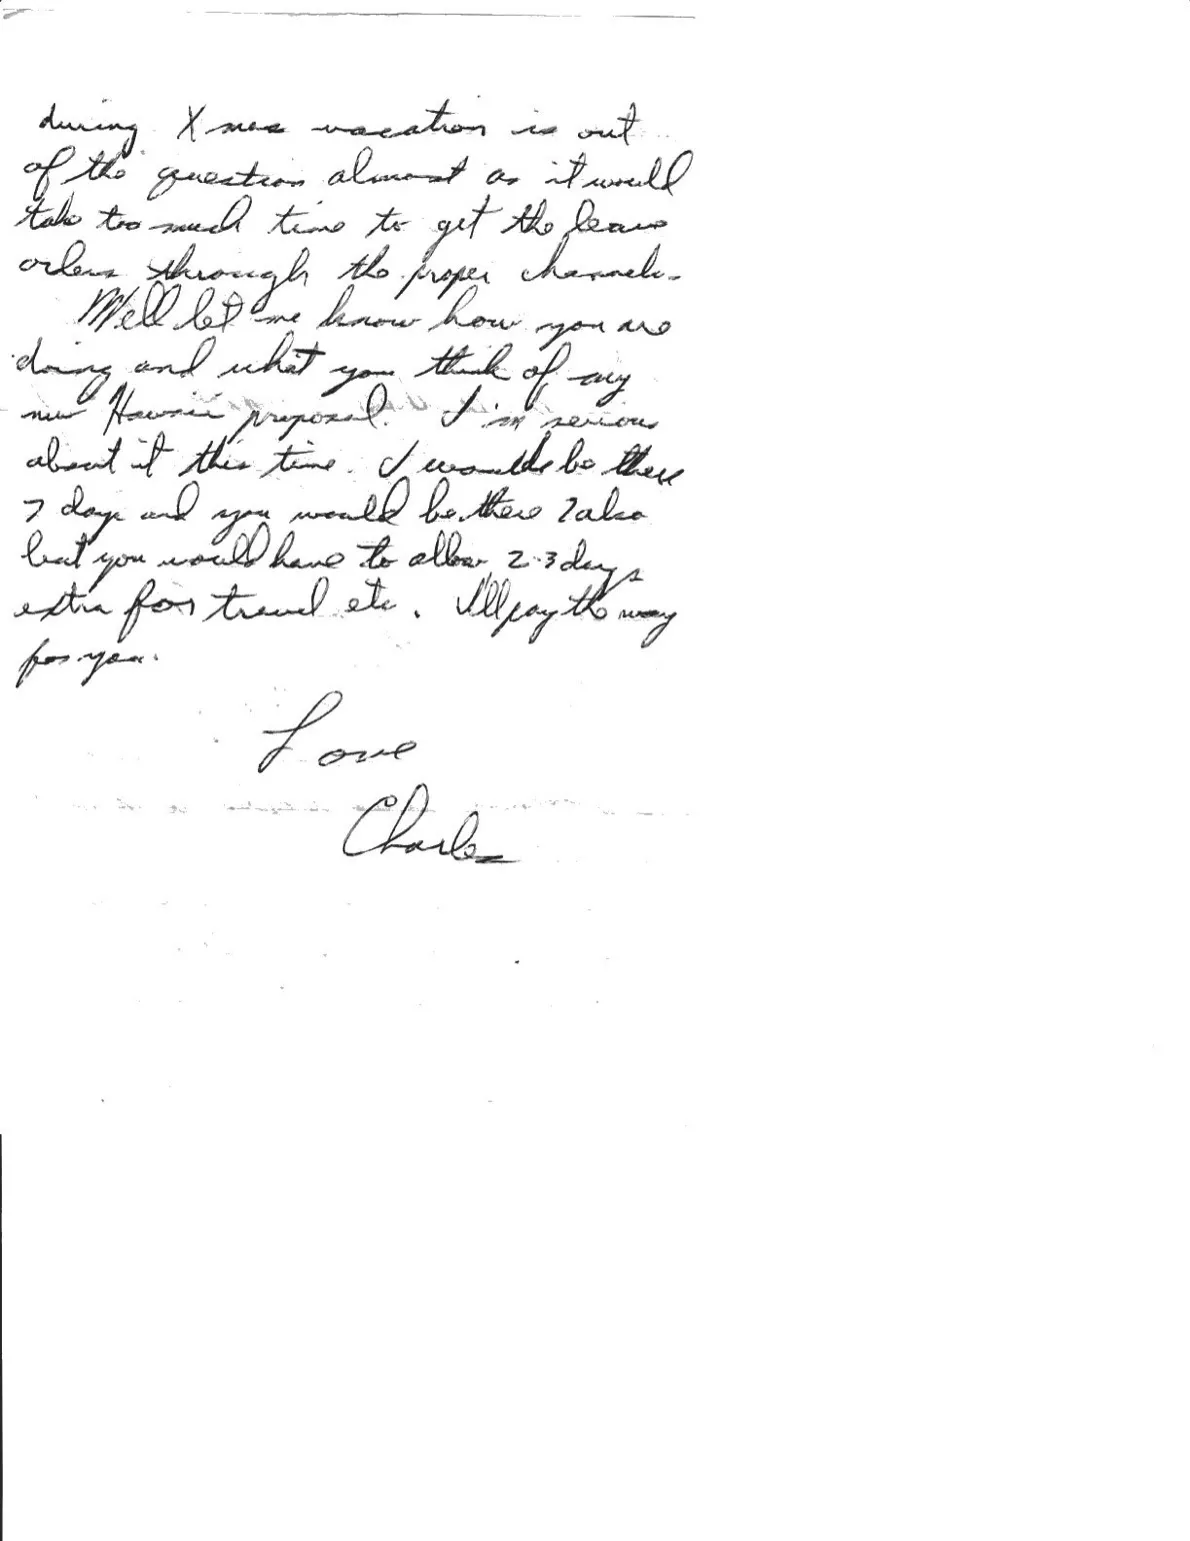 during Xmas vacation is out
of the question almost as it would
take too much time to get the leave
orders through the proper channels.
Well let me know how you are
doing and what you think of my
new Hawaii proposal. I'm serious
about it this time. I would be there
7 days and you would be there 7 also
but you would have to allow 2-3 days
extra for travel etc. I'll pay the way
for you.
Love
Charles